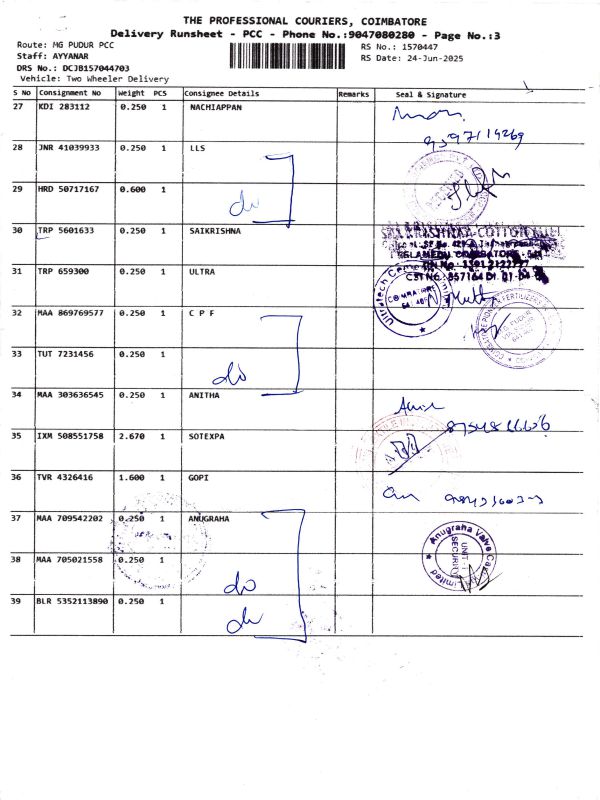 THE PROFESSIONAL COURIERS, COIMBATORE
Delivery Runsheet - PCC - Phone No.:9047080280 - Page No.:3
Route: MG PUDUR PCC
RS No.: 1570447
Staff: AYYANAR
RS Date: 24-Jun-2025
DRS No.: DCJB157044703
Vehicle: Two Wheeler Delivery
S No Consignment No Weight PCS Consignee Details Remarks Seal & Signature
27 KDI 283112 0.250 1 NACHIAPPAN
9597114269
28 JNR 41039933 0.250 1 LLS
29 HRD 50717167 0.600 1
do
30 TRP 5601633 0.250 1 SAIKRISHNA
31 TRP 659300 0.250 1 ULTRA
32 MAA 869769577 0.250 1 C P F
33 TUT 7231456 0.250 1
do
34 MAA 303636545 0.250 1 ANITHA
35 IXM 508551758 2.670 1 SOTEXPA
36 TVR 4326416 1.600 1 GOPI
37 MAA 709542202 0.250 1 ANUGRAHA
Anugraha Valve Castings Limited
UNIT -
SECURITY
38 MAA 705021558 0.250 1
do
39 BLR 5352113890 0.250 1
do